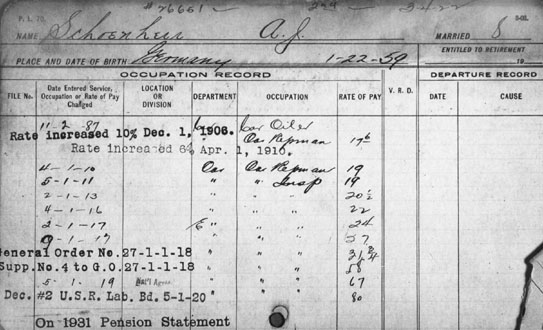 P. L. 70. # 26651
NAME Schoenheu A. J. MARRIED S
PLACE AND DATE OF BIRTH Germany 1-22-59 ENTITLED TO RETIREMENT
19
OCCUPATION RECORD DEPARTURE RECORD
FILE No. Date Entered Service, Occupation or Rate of Pay Changed LOCATION OR DIVISION DEPARTMENT OCCUPATION RATE OF PAY V. R. D. DATE CAUSE
11-2-87 Car Oiler
Rate increased 10% Dec. 1, 1906. " Car Repman 17 6
Rate increased 6% Apr. 1, 1910.
4-1-10 Car Car Repman 19
5-1-11 " " Insp 19
2-1-13 " " " 20 ½
4-1-16 " " " 22
2-1-17 " " " 24
9-1-17 " " " 27
General Order No. 27-1-1-18 " " " 31 ¾
Supp. No. 4 to G.O. 27-1-1-18 " " " 58
5-1-19 Nat'l Agree " " " 67
Dec. #2 U.S.R. Lab. Bd. 5-1-20 " " " 80
On 1931 Pension Statement